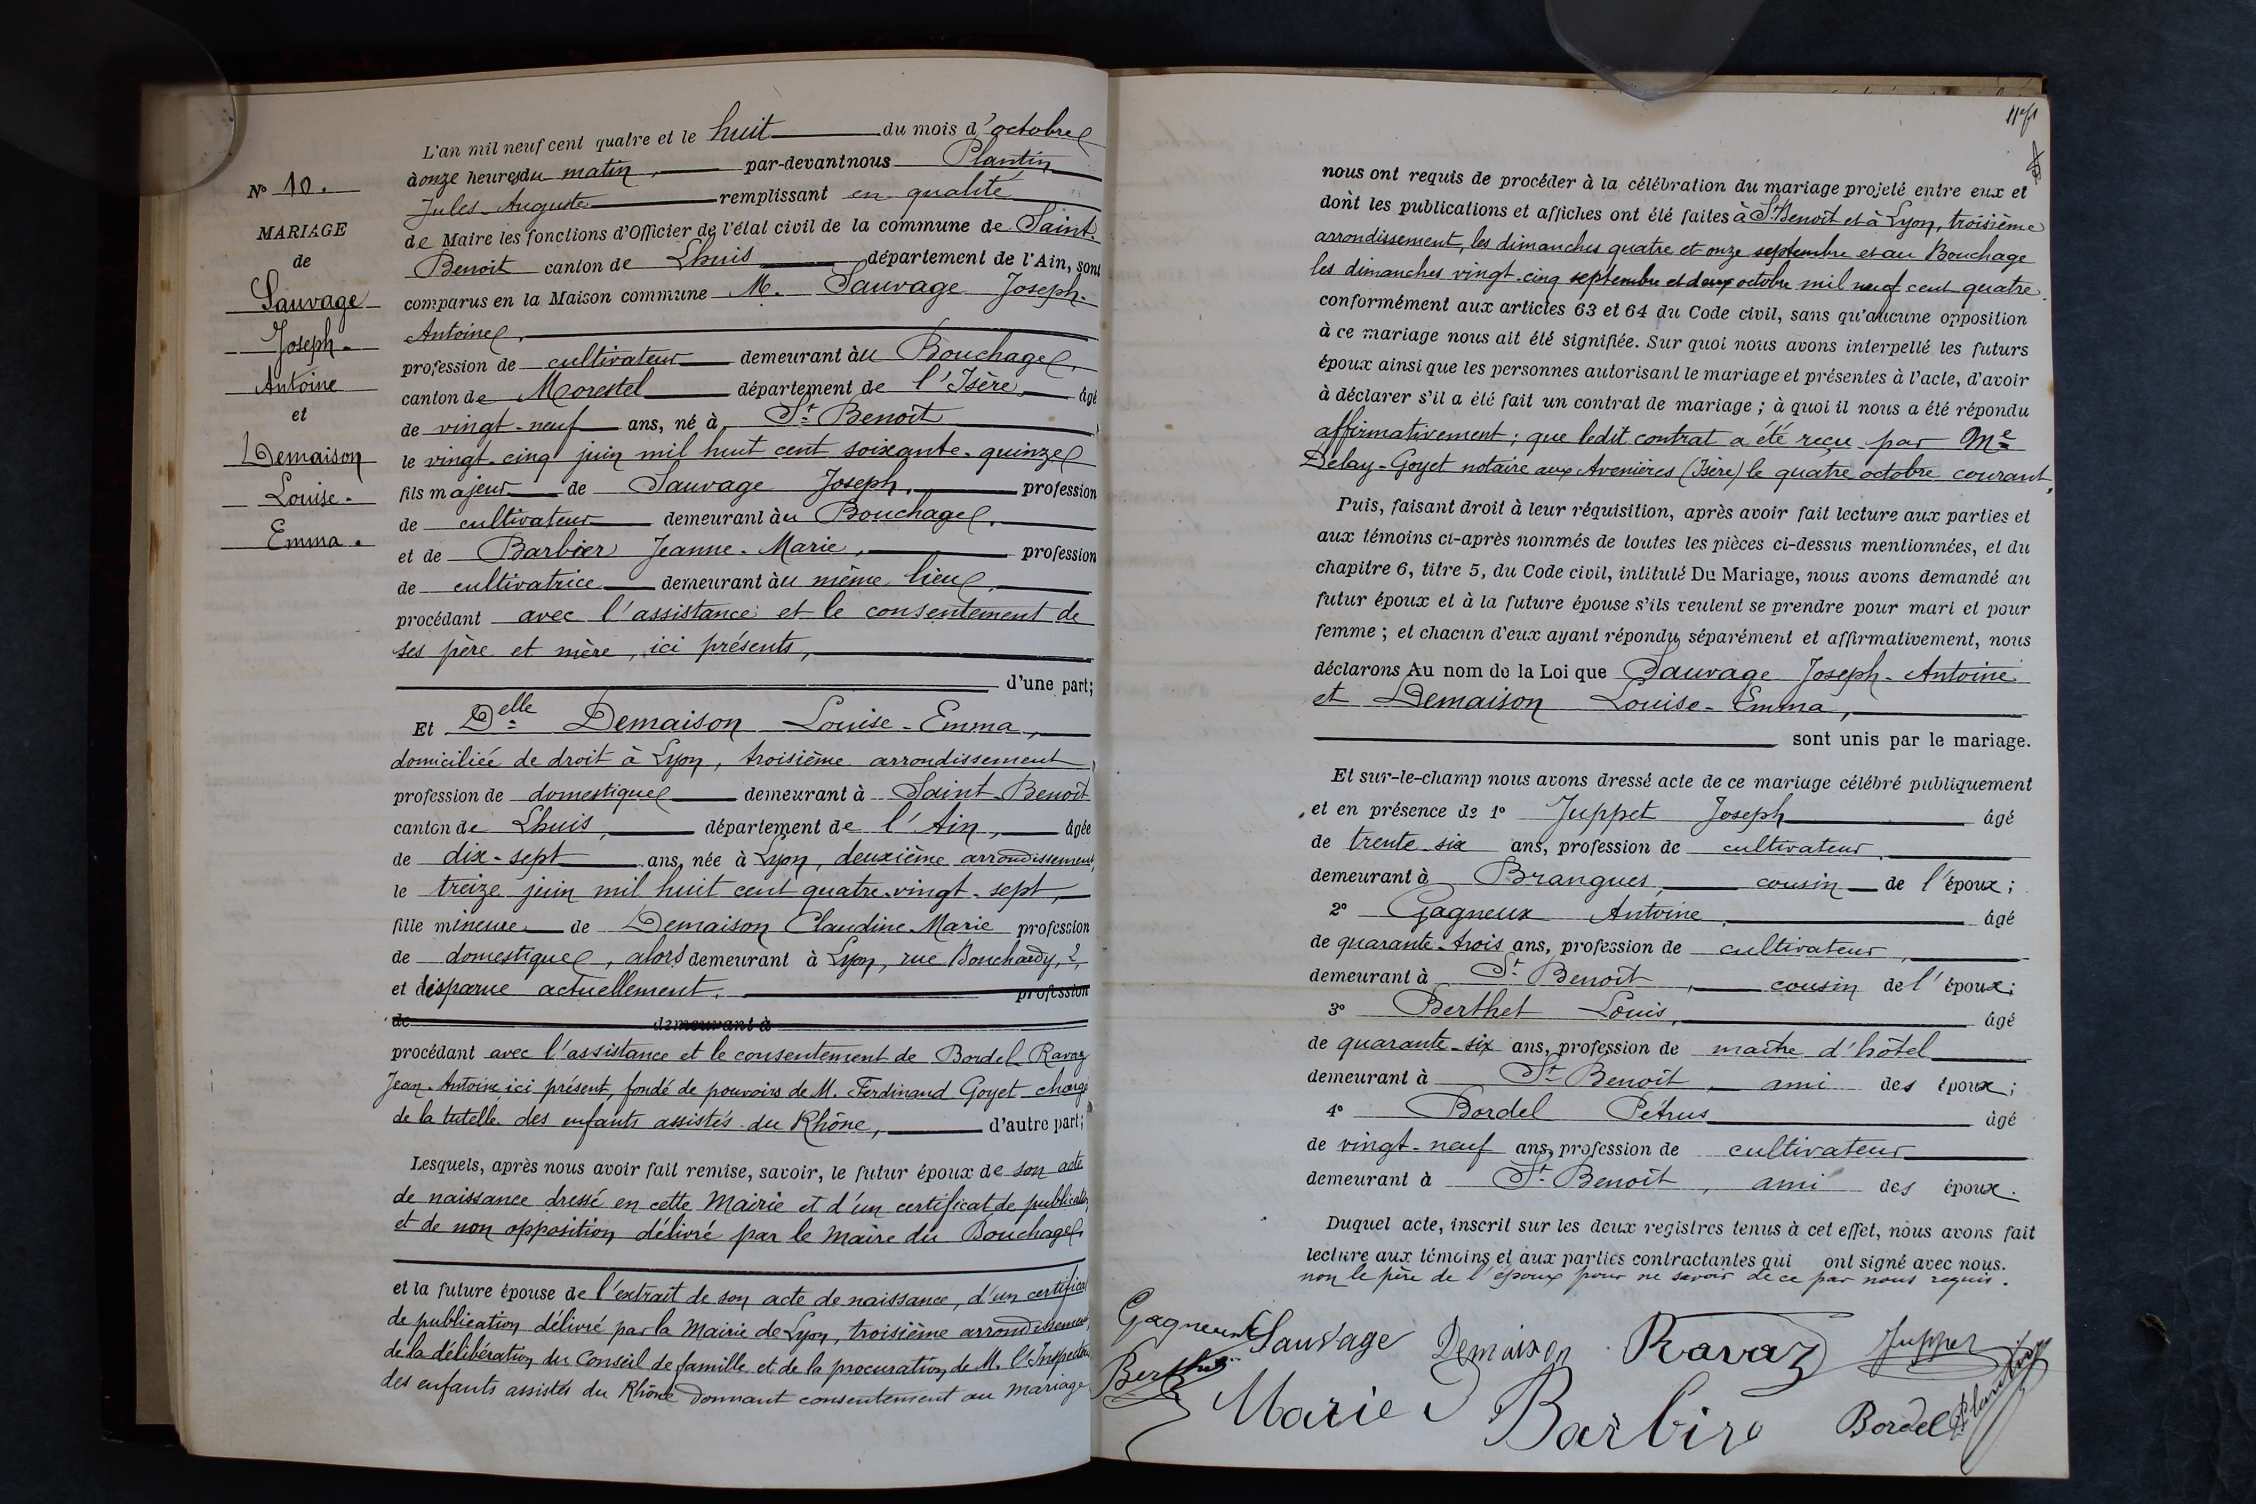 N° 10.
MARIAGE
de
Sauvage
Joseph-
Antoine
et
Demaison
Louise-
Emma.
L'an mil neuf cent quatre et le huit du mois d'octobre
à onze heures du matin, par-devant nous Plantin
Jules-Auguste remplissant en qualité
de Maire les fonctions d'Officier de l'état civil de la commune de Saint-
Benoit canton de Lhuis département de l'Ain, sont
comparus en la Maison commune M. Sauvage Joseph-
Antoine,
profession de cultivateur demeurant au Bouchage,
canton de Morestel département de l'Isère, âgé
de vingt-neuf ans, né à St Benoît,
le vingt-cinq juin mil huit cent soixante-quinze
fils majeur de Sauvage Joseph, profession
de cultivateur demeurant au Bouchage,
et de Barbier Jeanne-Marie, profession
de cultivatrice demeurant au même lieu,
procédant avec l'assistance et le consentement de
ses père et mère, ici présents,
d'une part;
Et Delle Demaison Louise-Emma,
domiciliée de droit à Lyon, troisième arrondissement,
profession de domestique demeurant à Saint-Benoît
canton de Lhuis, département de l'Ain, âgée
de dix-sept ans, née à Lyon, deuxième arrondissement,
le treize juin mil huit cent quatre-vingt-sept,
fille mineure de Demaison Claudine-Marie profession
de domestique, alors demeurant à Lyon, rue Bouchardy, 2,
et disparue actuellement. profession
de demeurant à
procédant avec l'assistance et le consentement de Bordel-Ravaz
Jean-Antoine, ici présent, fondé de pouvoirs de M. Ferdinand Goyet chargé
de la tutelle des enfants assistés du Rhône, d'autre part;
Lesquels, après nous avoir fait remise, savoir, le futur époux de son acte
de naissance dressé en cette Mairie et d'un certificat de publication
et de non opposition délivré par le Maire du Bouchage,
et la future épouse de l'extrait de son acte de naissance, d'un certificat
de publication délivré par la Mairie de Lyon, troisième arrondissement,
de la délibération du Conseil de famille et de la procuration de M. l'Inspecteur
des enfants assistés du Rhône donnant consentement au mariage
nous ont requis de procéder à la célébration du mariage projeté entre eux et
dont les publications et affiches ont été faites à St Benoît et à Lyon, troisième
arrondissement, les dimanches quatre et onze septembre et au Bouchage
les dimanches vingt-cinq septembre et deux octobre mil neuf cent quatre.
conformément aux articles 63 et 64 du Code civil, sans qu'aucune opposition
à ce mariage nous ait été signifiée. Sur quoi nous avons interpellé les futurs
époux ainsi que les personnes autorisant le mariage et présentes à l'acte, d'avoir
à déclarer s'il a été fait un contrat de mariage; à quoi il nous a été répondu
affirmativement; que ledit contrat a été reçu par Me
Delay-Goyet notaire aux Avenières (Isère) le quatre octobre courant,
Puis, faisant droit à leur réquisition, après avoir fait lecture aux parties et
aux témoins ci-après nommés de toutes les pièces ci-dessus mentionnées, et du
chapitre 6, titre 5, du Code civil, intitulé Du Mariage, nous avons demandé au
futur époux et à la future épouse s'ils veulent se prendre pour mari et pour
femme; et chacun d'eux ayant répondu séparément et affirmativement, nous
déclarons Au nom de la Loi que Sauvage Joseph-Antoine
et Demaison Louise-Emma,
sont unis par le mariage.
Et sur-le-champ nous avons dressé acte de ce mariage célébré publiquement
et en présence de 1° Juppet Joseph âgé
de trente-six ans, profession de cultivateur,
demeurant à Brangues, cousin de l'époux;
2° Gagneux Antoine, âgé
de quarante-trois ans, profession de cultivateur,
demeurant à St Benoît, cousin de l'époux;
3° Berthet Louis, âgé
de quarante-six ans, profession de maître d'hôtel
demeurant à St Benoît, ami des époux;
4° Bordel Pétrus âgé
de vingt-neuf ans, profession de cultivateur
demeurant à St Benoît, ami des époux.
Duquel acte, inscrit sur les deux registres tenus à cet effet, nous avons fait
lecture aux témoins et aux parties contractantes qui ont signé avec nous.
non le père de l'époux pour ne savoir de ce par nous requis.
Gagneux Sauvage Demaison Ravaz Juppet
Berthet Marie Barbire Bordel Plantin